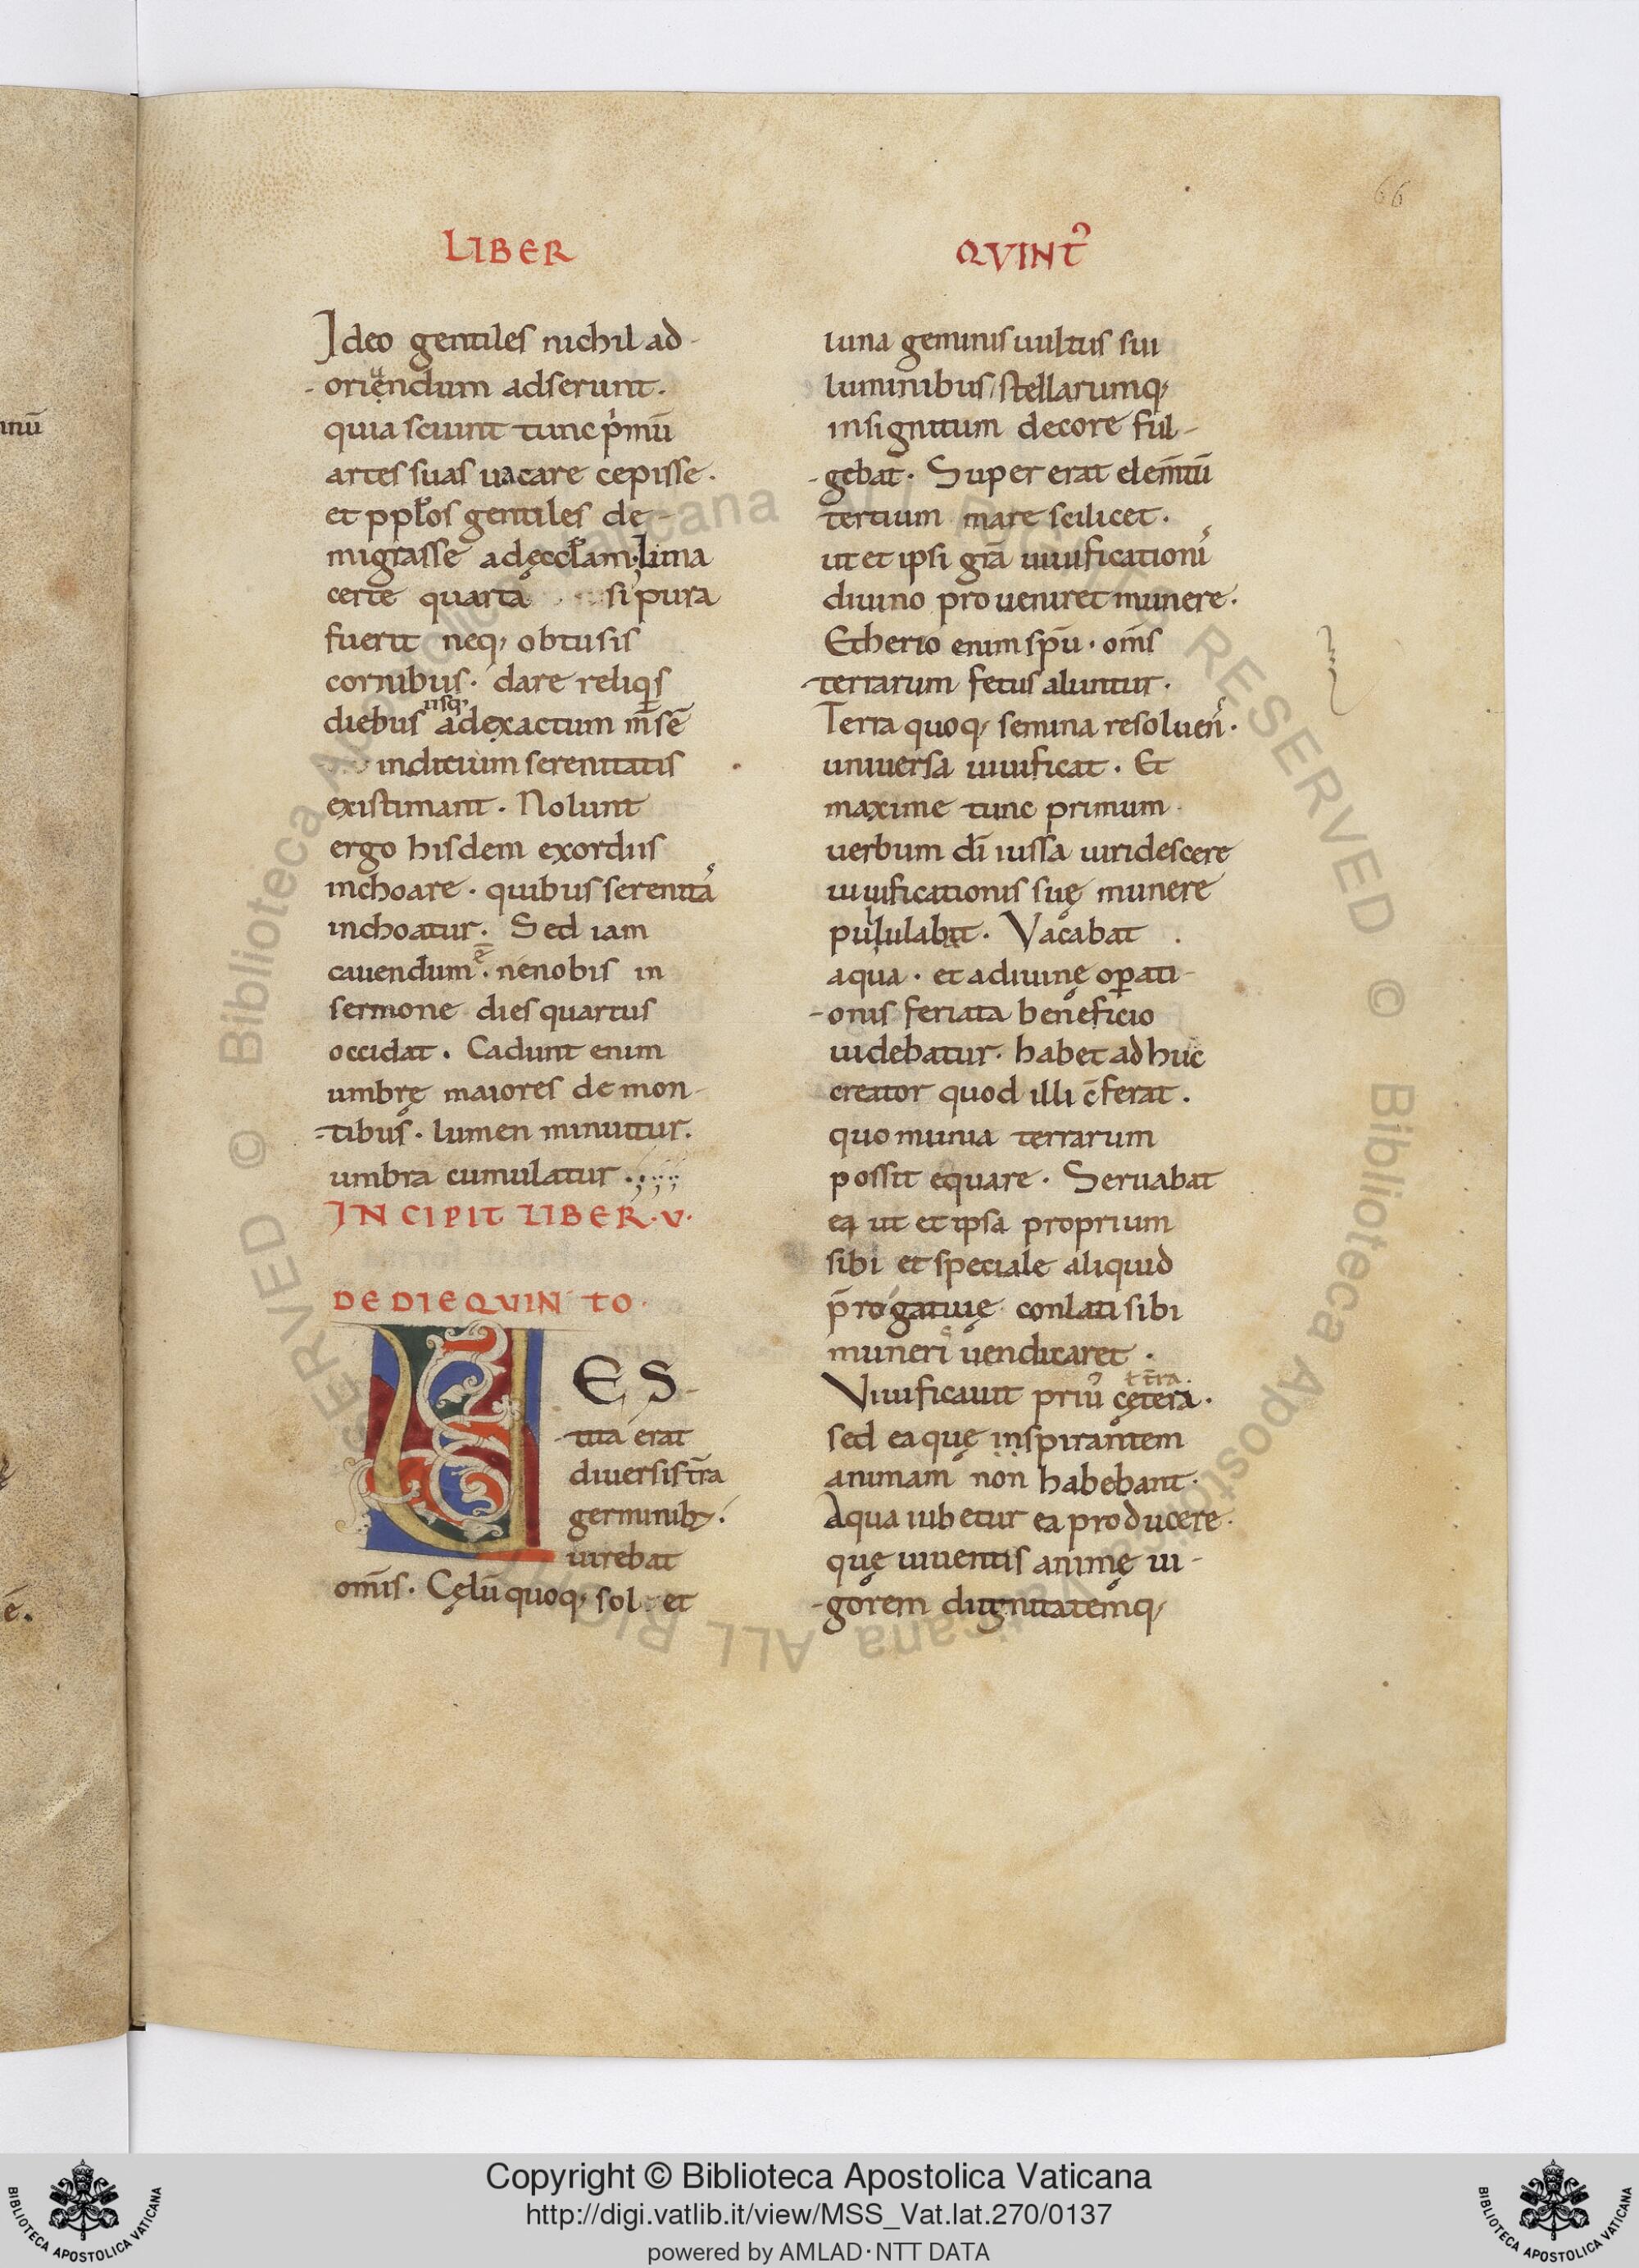 66
LIBER
Ideo gentiles nichil ad-
-oriendum adserunt.
quia sciunt tunc pͥmū
artes suas uacare cepisse.
et pplo̅s gentiles de-
migrasse ad ęccl̅am. luna
certe quarta si pura
fuerit neq; obtusis
cornibus. dare reliqs
diebus usq; ad exactum m̅sē
indicium serenitatis
existimant. Nolunt
ergo hisdem exordiis
inchoare. quibus serenitaˢ
inchoatur. Sed iam
cauendum ē. ne nobis in
sermone dies quartus
occidat. Cadunt enim
umbrę maiores de mon-
-tibus. lumen minuitur.
umbra cumulatur.
INCIPIT LIBER.V.
DE DIE QVINTO.
VES-
-tita erat
diuersis tr̅a
germinib;.
uirebat
om̅is. Cęlū quoq; sol. et
QVINTꝰ
luna geminis uultus sui
luminibus, stellarumq;
insignitum decore ful-
-gebat. Super erat elem̅tū
tertium mare scilicet.
ut et ipsi gr̅a uiuificationiˢ
diuino proueniret munere.
Etherio enim spū. om̅s
terrarum fetus aluntur.
Terra quoq; semina resoluenˢ.
uniuersa uiuificat. Et
maxime tunc primum
uerbum dī iussa uiridescere
uiuificationis suę munere
pullulabat. Vacabat
aqua. et a diuinę oꝑati-
-onis feriata beneficio
uidebatur. habet ad huc
creator quod illi c̅ferat.
quo munia terrarum
possit equare. Seruabat
ea ut et ipsa proprium
sibi et speciale aliquid
p̅rogatiuę conlati sibi
muneri uendicaret.
t̅ra.
Viuificauit priuꝰ cętera.
sed ea quę inspirantem
animam non habebant.
Aqua iubetur ea producere.
quę uiuentis animę ui-
-gorem dignitatemq;
Copyright © Biblioteca Apostolica Vaticana
http://digi.vatlib.it/view/MSS_Vat.lat.270/0137
powered by AMLAD·NTT DATA
BIBLIOTECA APOSTOLICA VATICANA
BIBLIOTECA APOSTOLICA VATICANA
© Biblioteca Apostolica Vaticana ALL RIGHTS RESERVED © Biblioteca Apostolica Vaticana ALL RIGHTS RESERVED